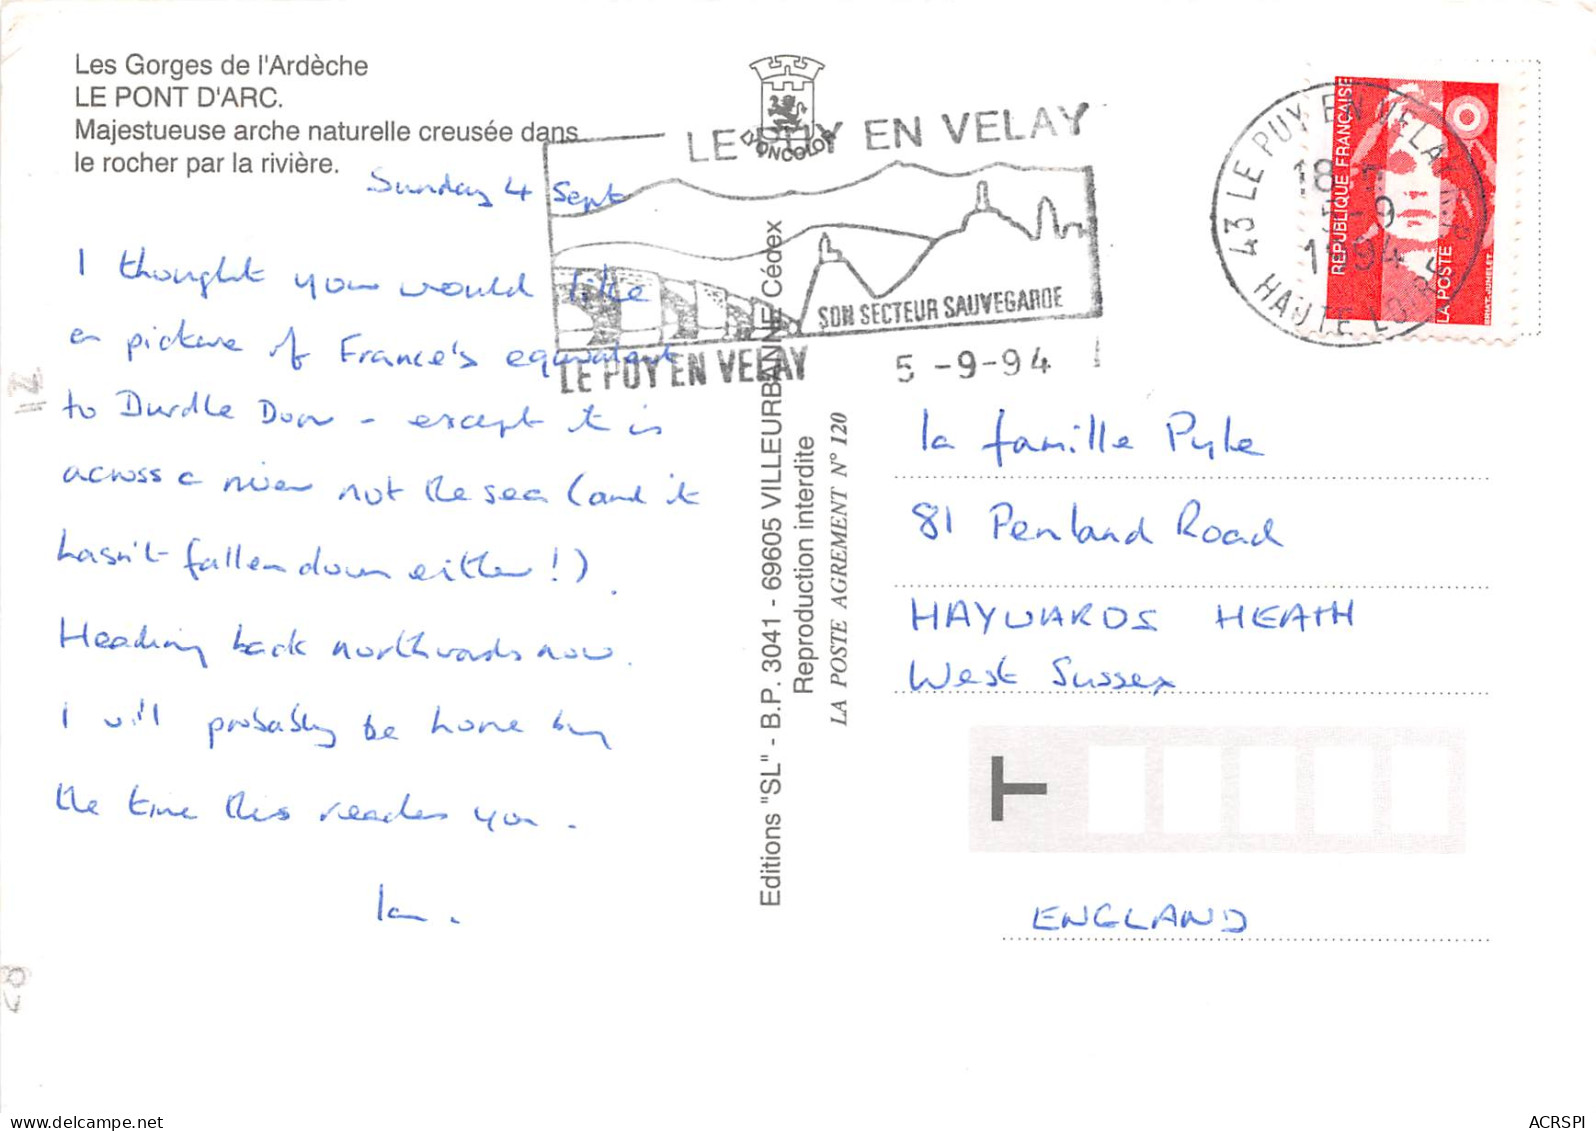 Les Gorges de l'Ardèche
LE PONT D'ARC.
Majestueuse arche naturelle creusée dans
le rocher par la rivière.
Sunday 4 Sept
I thought you would like
a picture of France's equivalent
to Durdle Door - except it is
across a river not the sea (and it
hasn't fallen down either!)
Heading back northwards now.
I will probably be home by
the time this reaches you.
Ian.
LYONCOLOR
LE PUY EN VELAY
SON SECTEUR SAUVEGARDE
LE PUY EN VELAY
5-9-94
Editions "SL" - B.P. 3041 - 69605 VILLEURBANNE Cédex
Reproduction interdite
LA POSTE AGREMENT N° 120
43 LE PUY EN VELAY
18 H
5-9
1994
HAUTE LOIRE
REPUBLIQUE FRANÇAISE
LA POSTE
BRIAT-JUMELET
la famille Pyle
81 Penland Road
HAYWARDS HEATH
West Sussex
T
ENGLAND
delcampe.net
ACRSPI